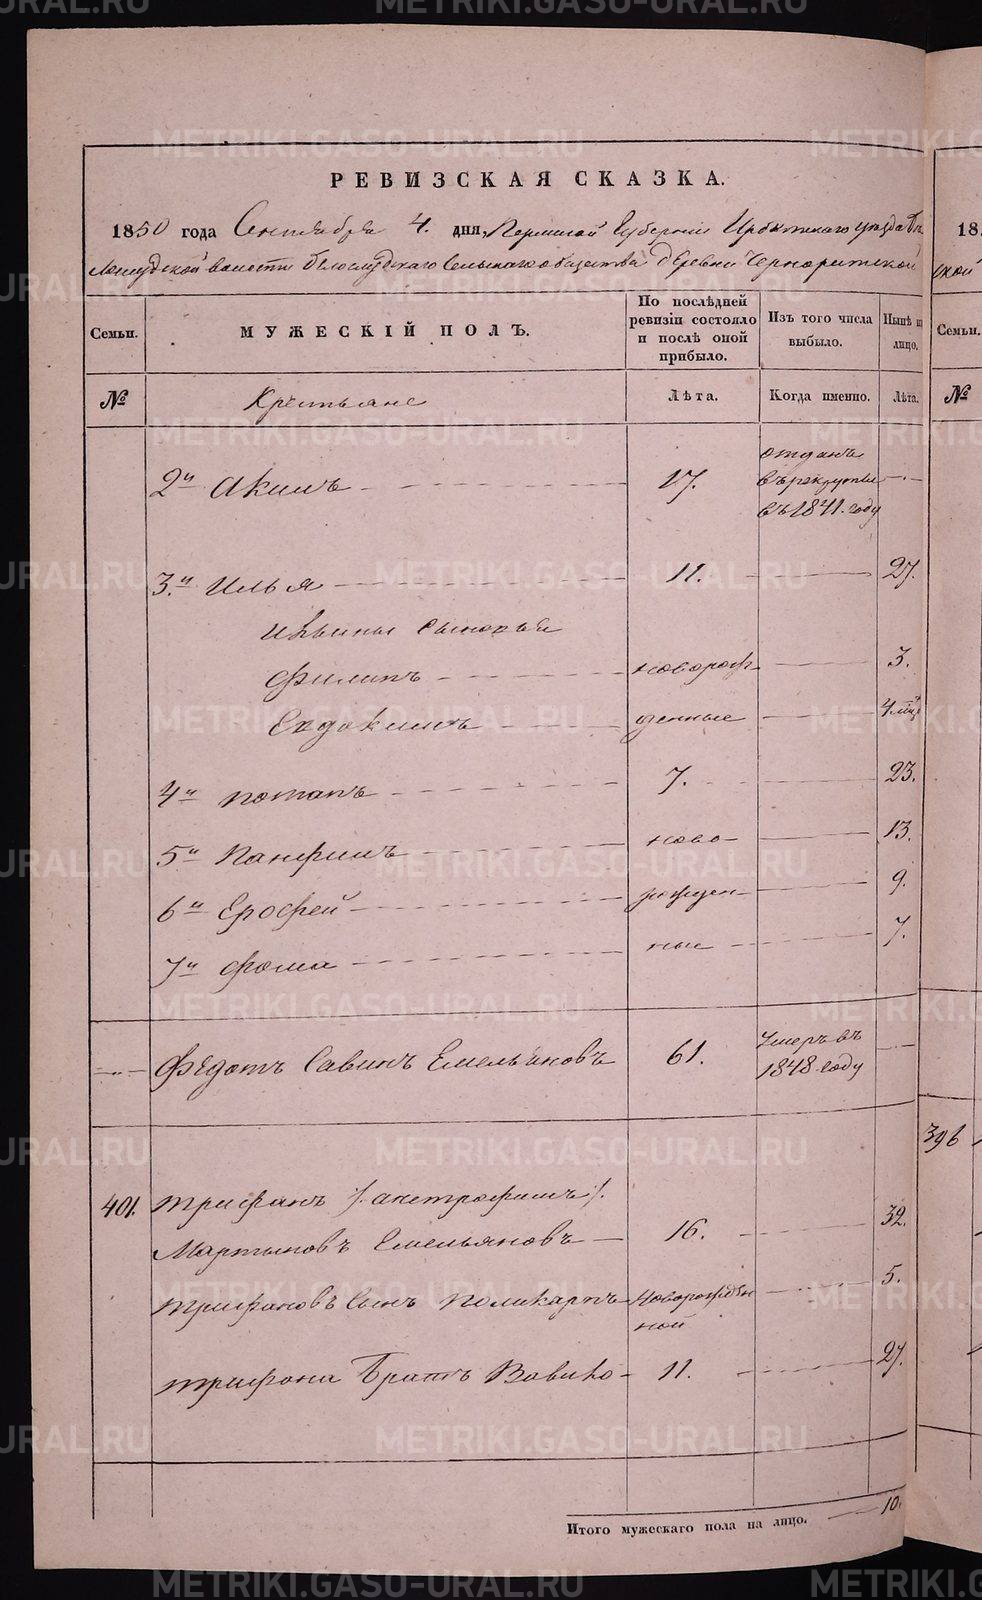 РЕВИЗСКАЯ СКАЗКА.
1850 года Сентября 4. дня, Пермской Губернiи Ирбитскаго уѣзда
волости Бѣлослудскаго Сельскаго общества деревни Чернорицкой
Семьи. МУЖЕСКIЙ ПОЛЪ. По послѣдней ревизiи состояло и послѣ оной прибыло. Изъ того числа выбыло. Нынѣ на лицо.
№ Крестьяне Лѣта. Когда именно. Лѣта.
2й Акимъ 17. отданъ в рекруты въ 1841. году
3й Илья 11. 27.
Ильины Сыновья
Филипъ новорож- 3.
Евдокимъ денные 4 мца
4й Потапъ 7. 23.
5й Панфилъ ново- 13.
6й Ерофей рожден- 9.
7й Фома ные 7.
Федотъ Савинъ Емельяновъ 61. Умеръ въ 1848. году
401. Трифанъ /: анетрофимъ :/
Мартыновъ Емельяновъ 16. 32.
Трифановъ Сынъ Поликарпъ новорожден 5.
ной
Трифона Братъ Вавило 11. 27.
Итого мужескаго пола на лицо. 10.
18
ской
Семьи.
№
396
METRIKI.GASO-URAL.RU